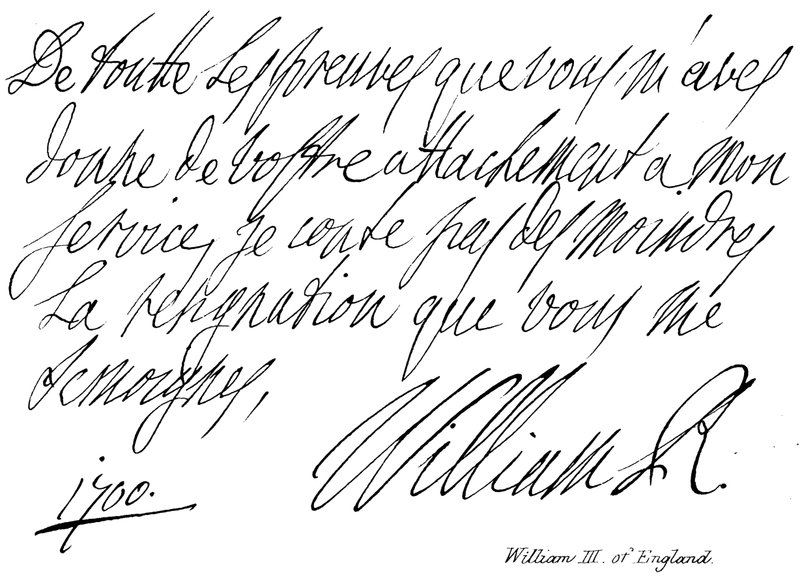 De toutte les preuves que vous m'aves
donne de vostre attachement a mon
service, je conte pas des moindres
la resignation que vous me
temoignes,
William R.
1700.
William III. of England.